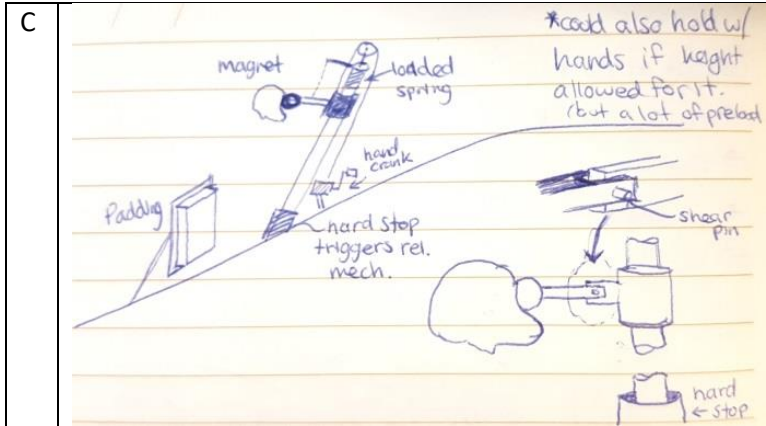 C
*could also hold w/
hands if height
allowed for it.
(but a lot of preload
magnet
loaded
spring
hand
crank
Padding
hard stop
triggers rel.
mech.
shear
pin
hard
← stop